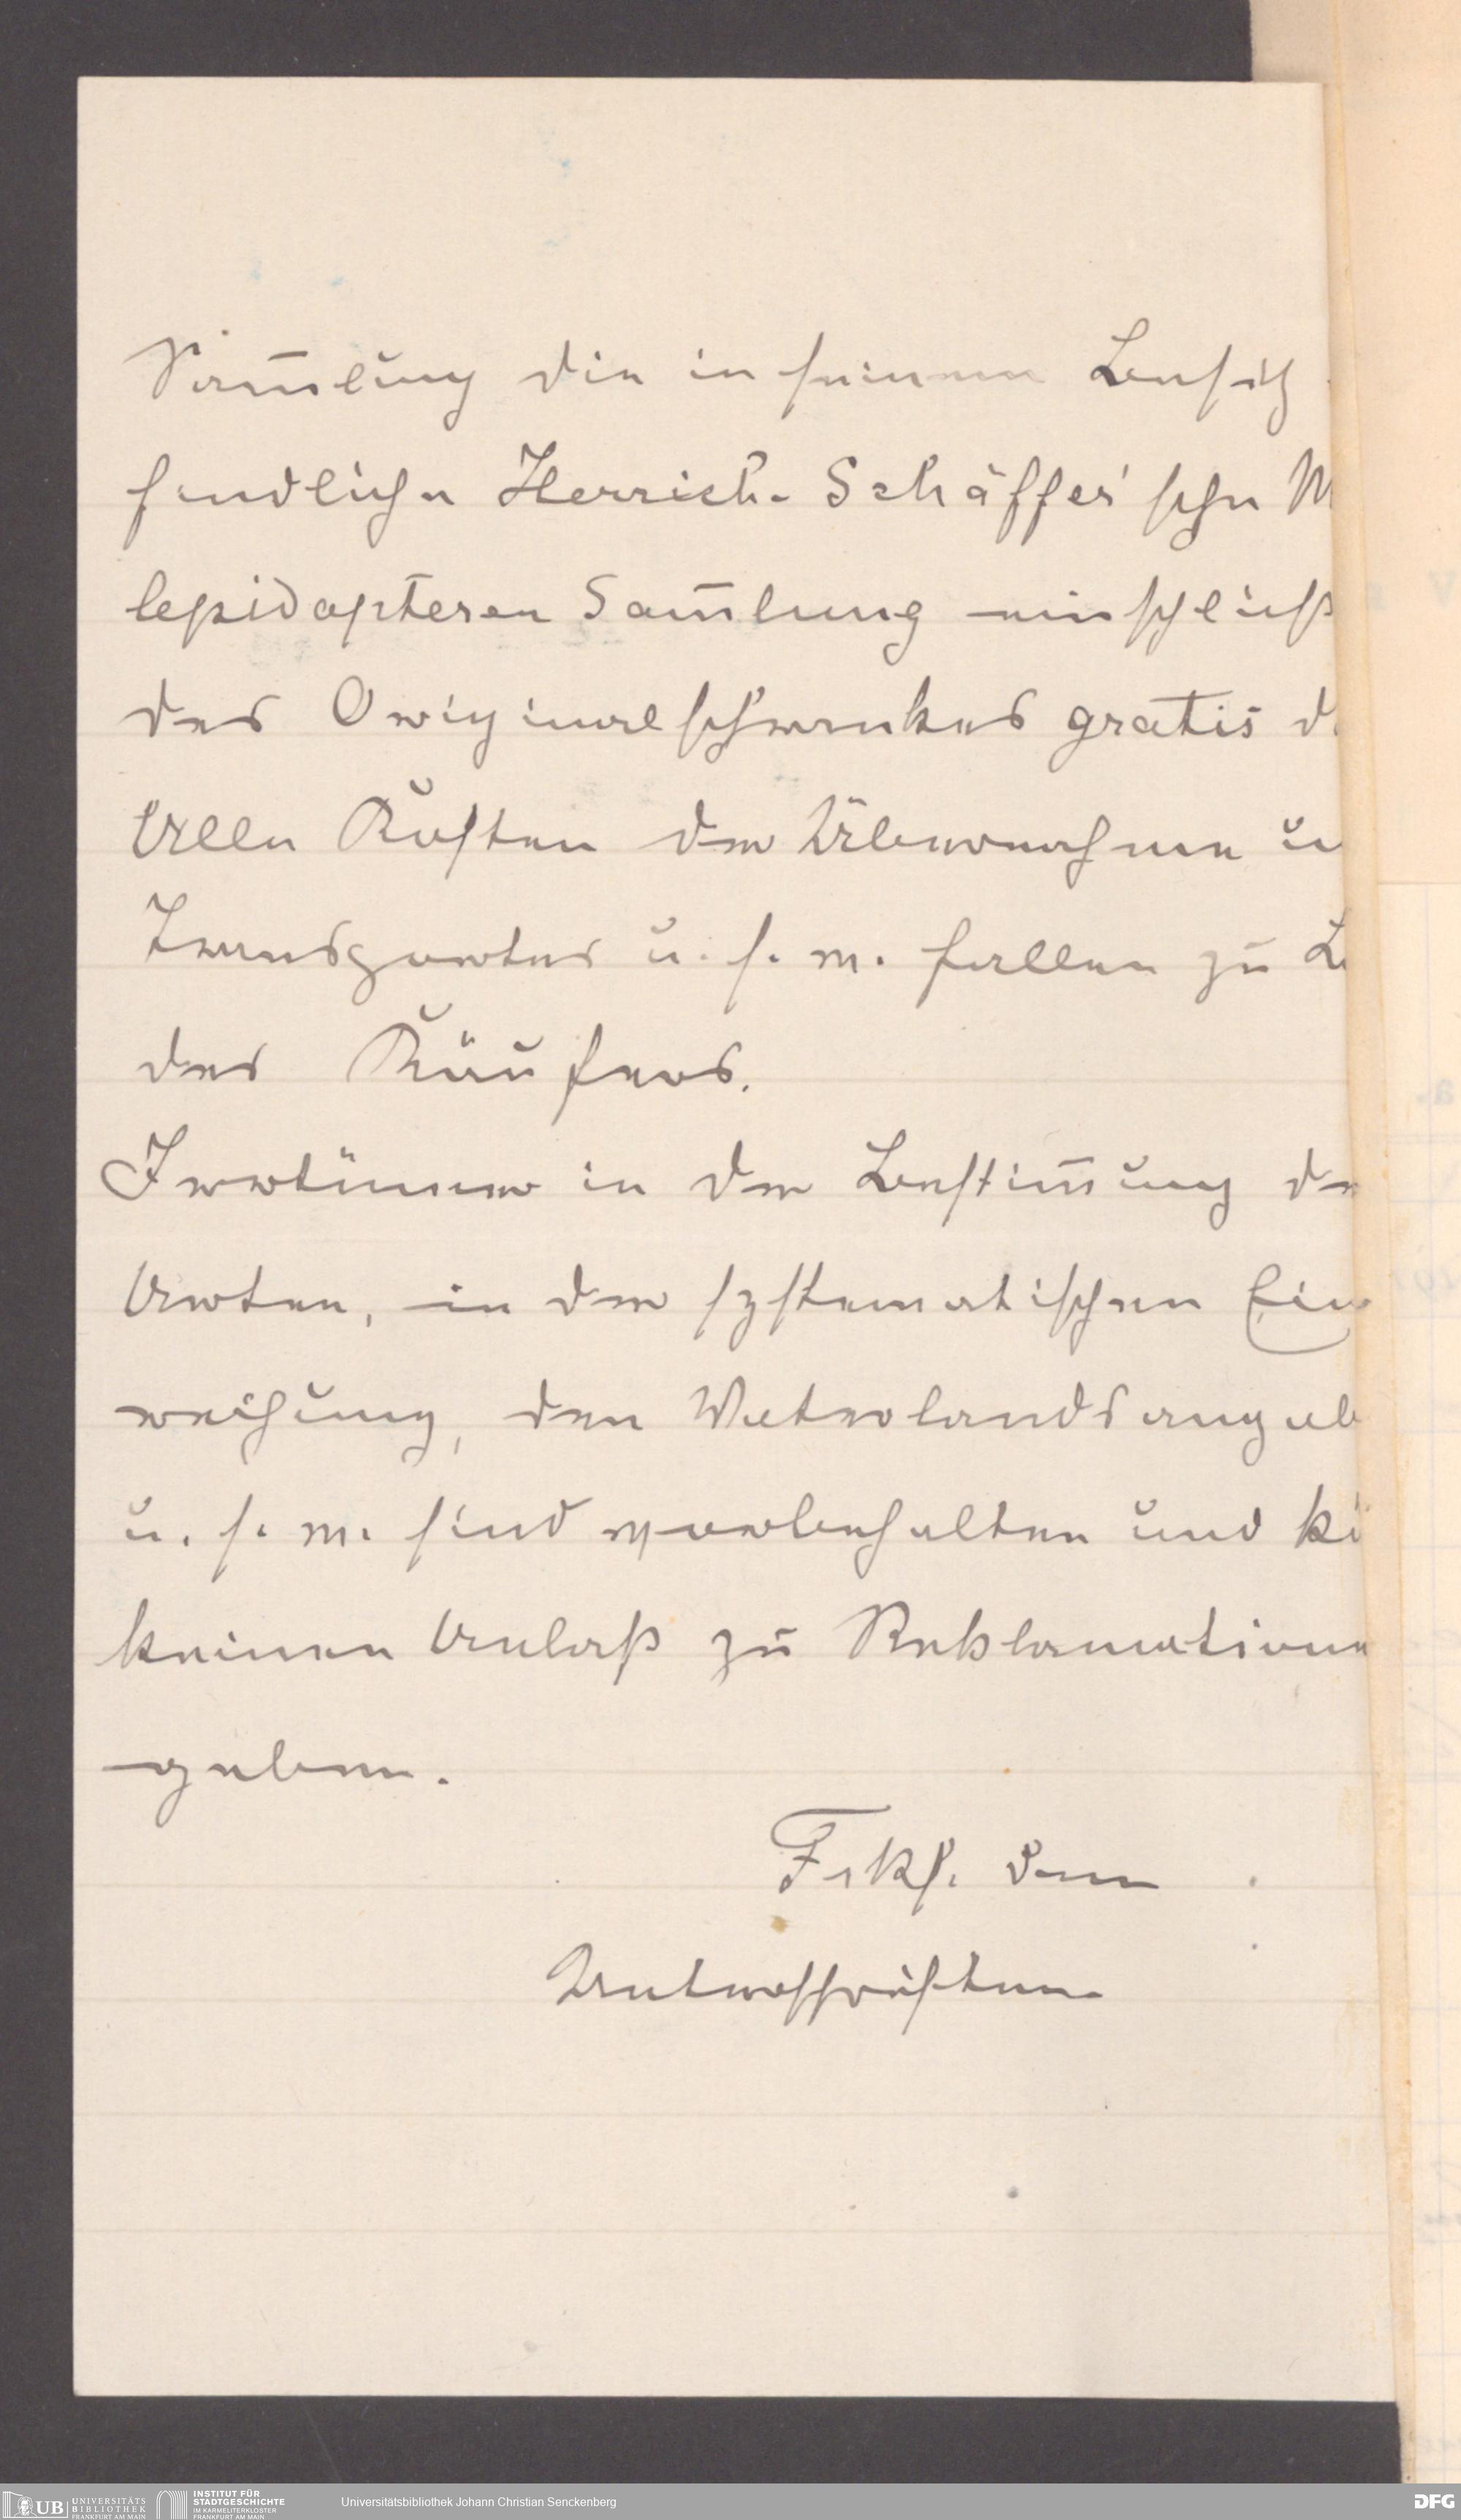 Sam̅lung die in seinem Besitz
findliche Herrich-Schäffer'sche M
lepidopteren Sam̅lung einschließ
des Originalschrankes gratis d
Alle Kosten der Übernahme u
Transportes u. s. w. fallen zu L
des Käufers.
Irrtümer in der Bestim̅ung de
Arten, in der systematischen Ein
reihung, den Vaterlandsangab
u. s. w. sind vorbehalten und kö
keinen Anlaß zu Reklamatione
geben.
Frkf. den
Unterschriften
UB UNIVERSITÄTS BIBLIOTHEK FRANKFURT AM MAIN
INSTITUT FÜR STADTGESCHICHTE IM KARMELITERKLOSTER FRANKFURT AM MAIN
Universitätsbibliothek Johann Christian Senckenberg
DFG